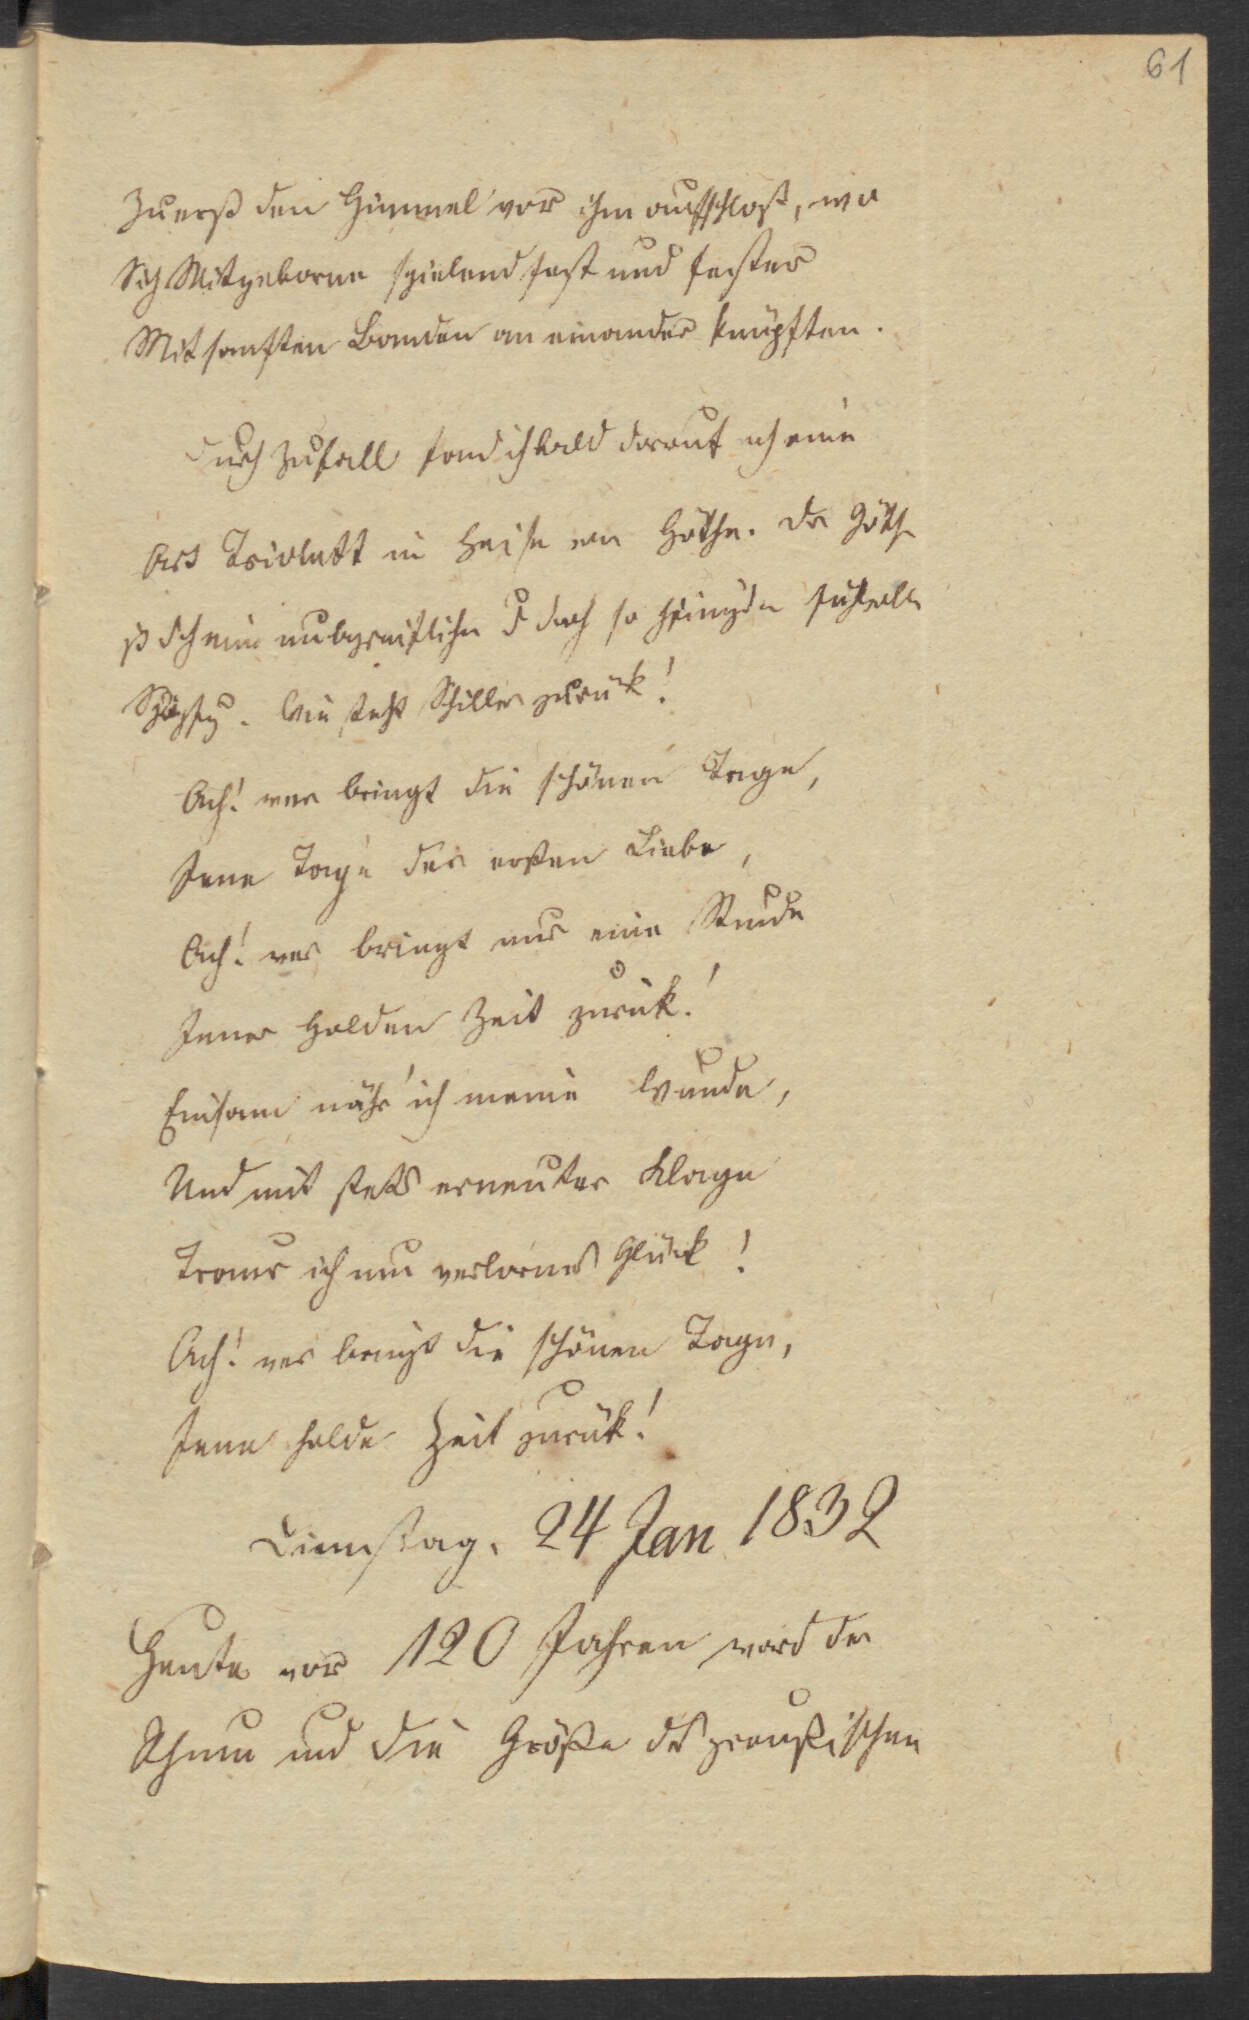 61
Zuerst den Himmel vor ihm aufschloß, wo
Sich Mitgeborne spielend fest und fester
Mit sanften Banden an einander knüpften.
Durch Zufall fand ich bald darauf auch eine
Art Triolett in von Göthe. Der Göthe
ist doch ein unbegreiflicher u doch so
Wie steht Schiller zurück!
Ach! wer bringt die schönen Tage,
Jene Tage der ersten Liebe,
Ach! wer bringt nur eine Stunde
Jener holden Zeit zurük!
Einsam nähr' ich meine Wunde,
Und mit stets erneuter Klage
Traur ich um verlornes Glück!
Ach! wer bringt die schönen Tage,
Jene holde Zeit zurük!
Dienstag. 24 Jan 1832
Heute vor 120 Jahren ward der
Ruhm und die Größe des preußischen